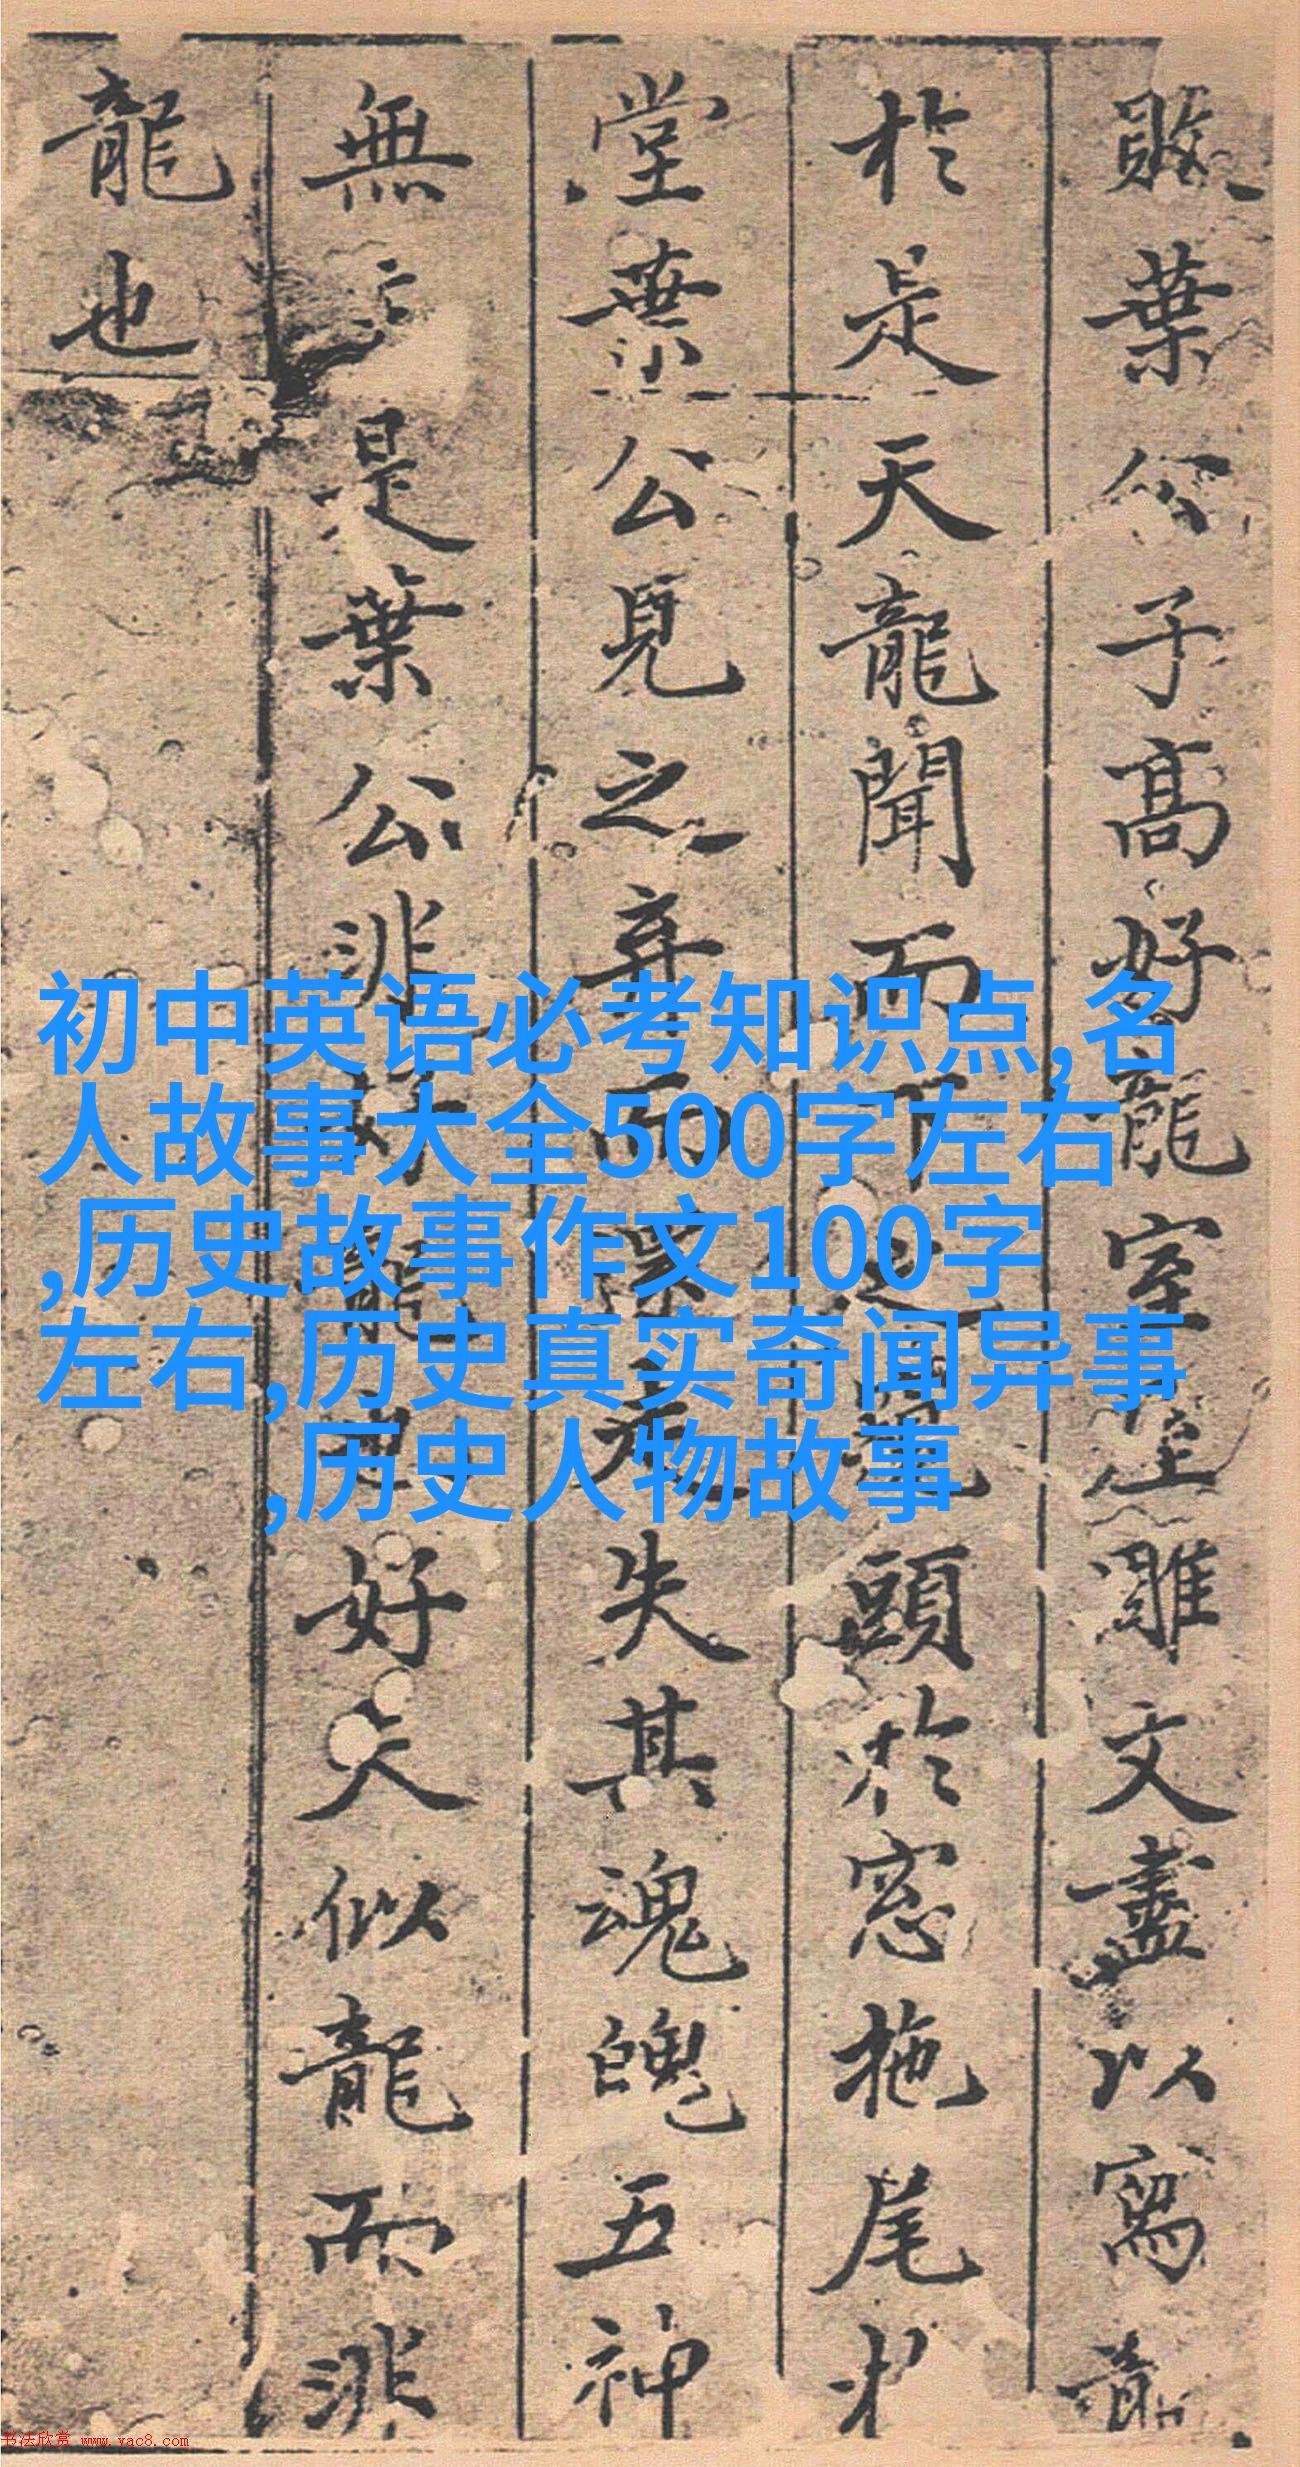 葉公子高好龍室雕文盡以寫龍
於是天龍聞而下之窺頭於窓拖尾於
堂葉公見之弃而還走失其魂魄五神
無主是葉公非好龍也好夫似龍而非
龍也
初中英语必考知识点,名
人故事大全500字左右
,历史故事作文100字
左右,历史真实奇闻异事
,历史人物故事
书法欣赏 www.yac8.com